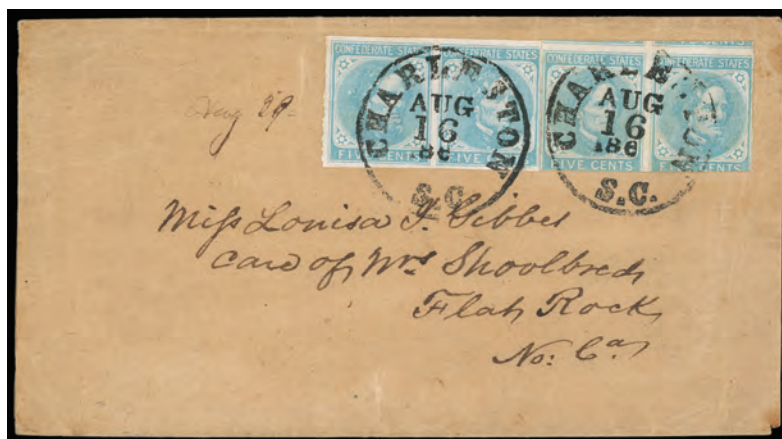 CONFEDERATE STATES CONFEDERATE STATES CONFEDERATE STATES CONFEDERATE STATES
FIVE CENTS FIVE CENTS FIVE CENTS FIVE CENTS
CHARLESTON
AUG
16
186
S.C.
CHARLESTON
AUG
16
186
S.C.
Aug 29
Miss Louisa J. Gibbes
care of Mrs Shoolbred
Flat Rock
No: Ca